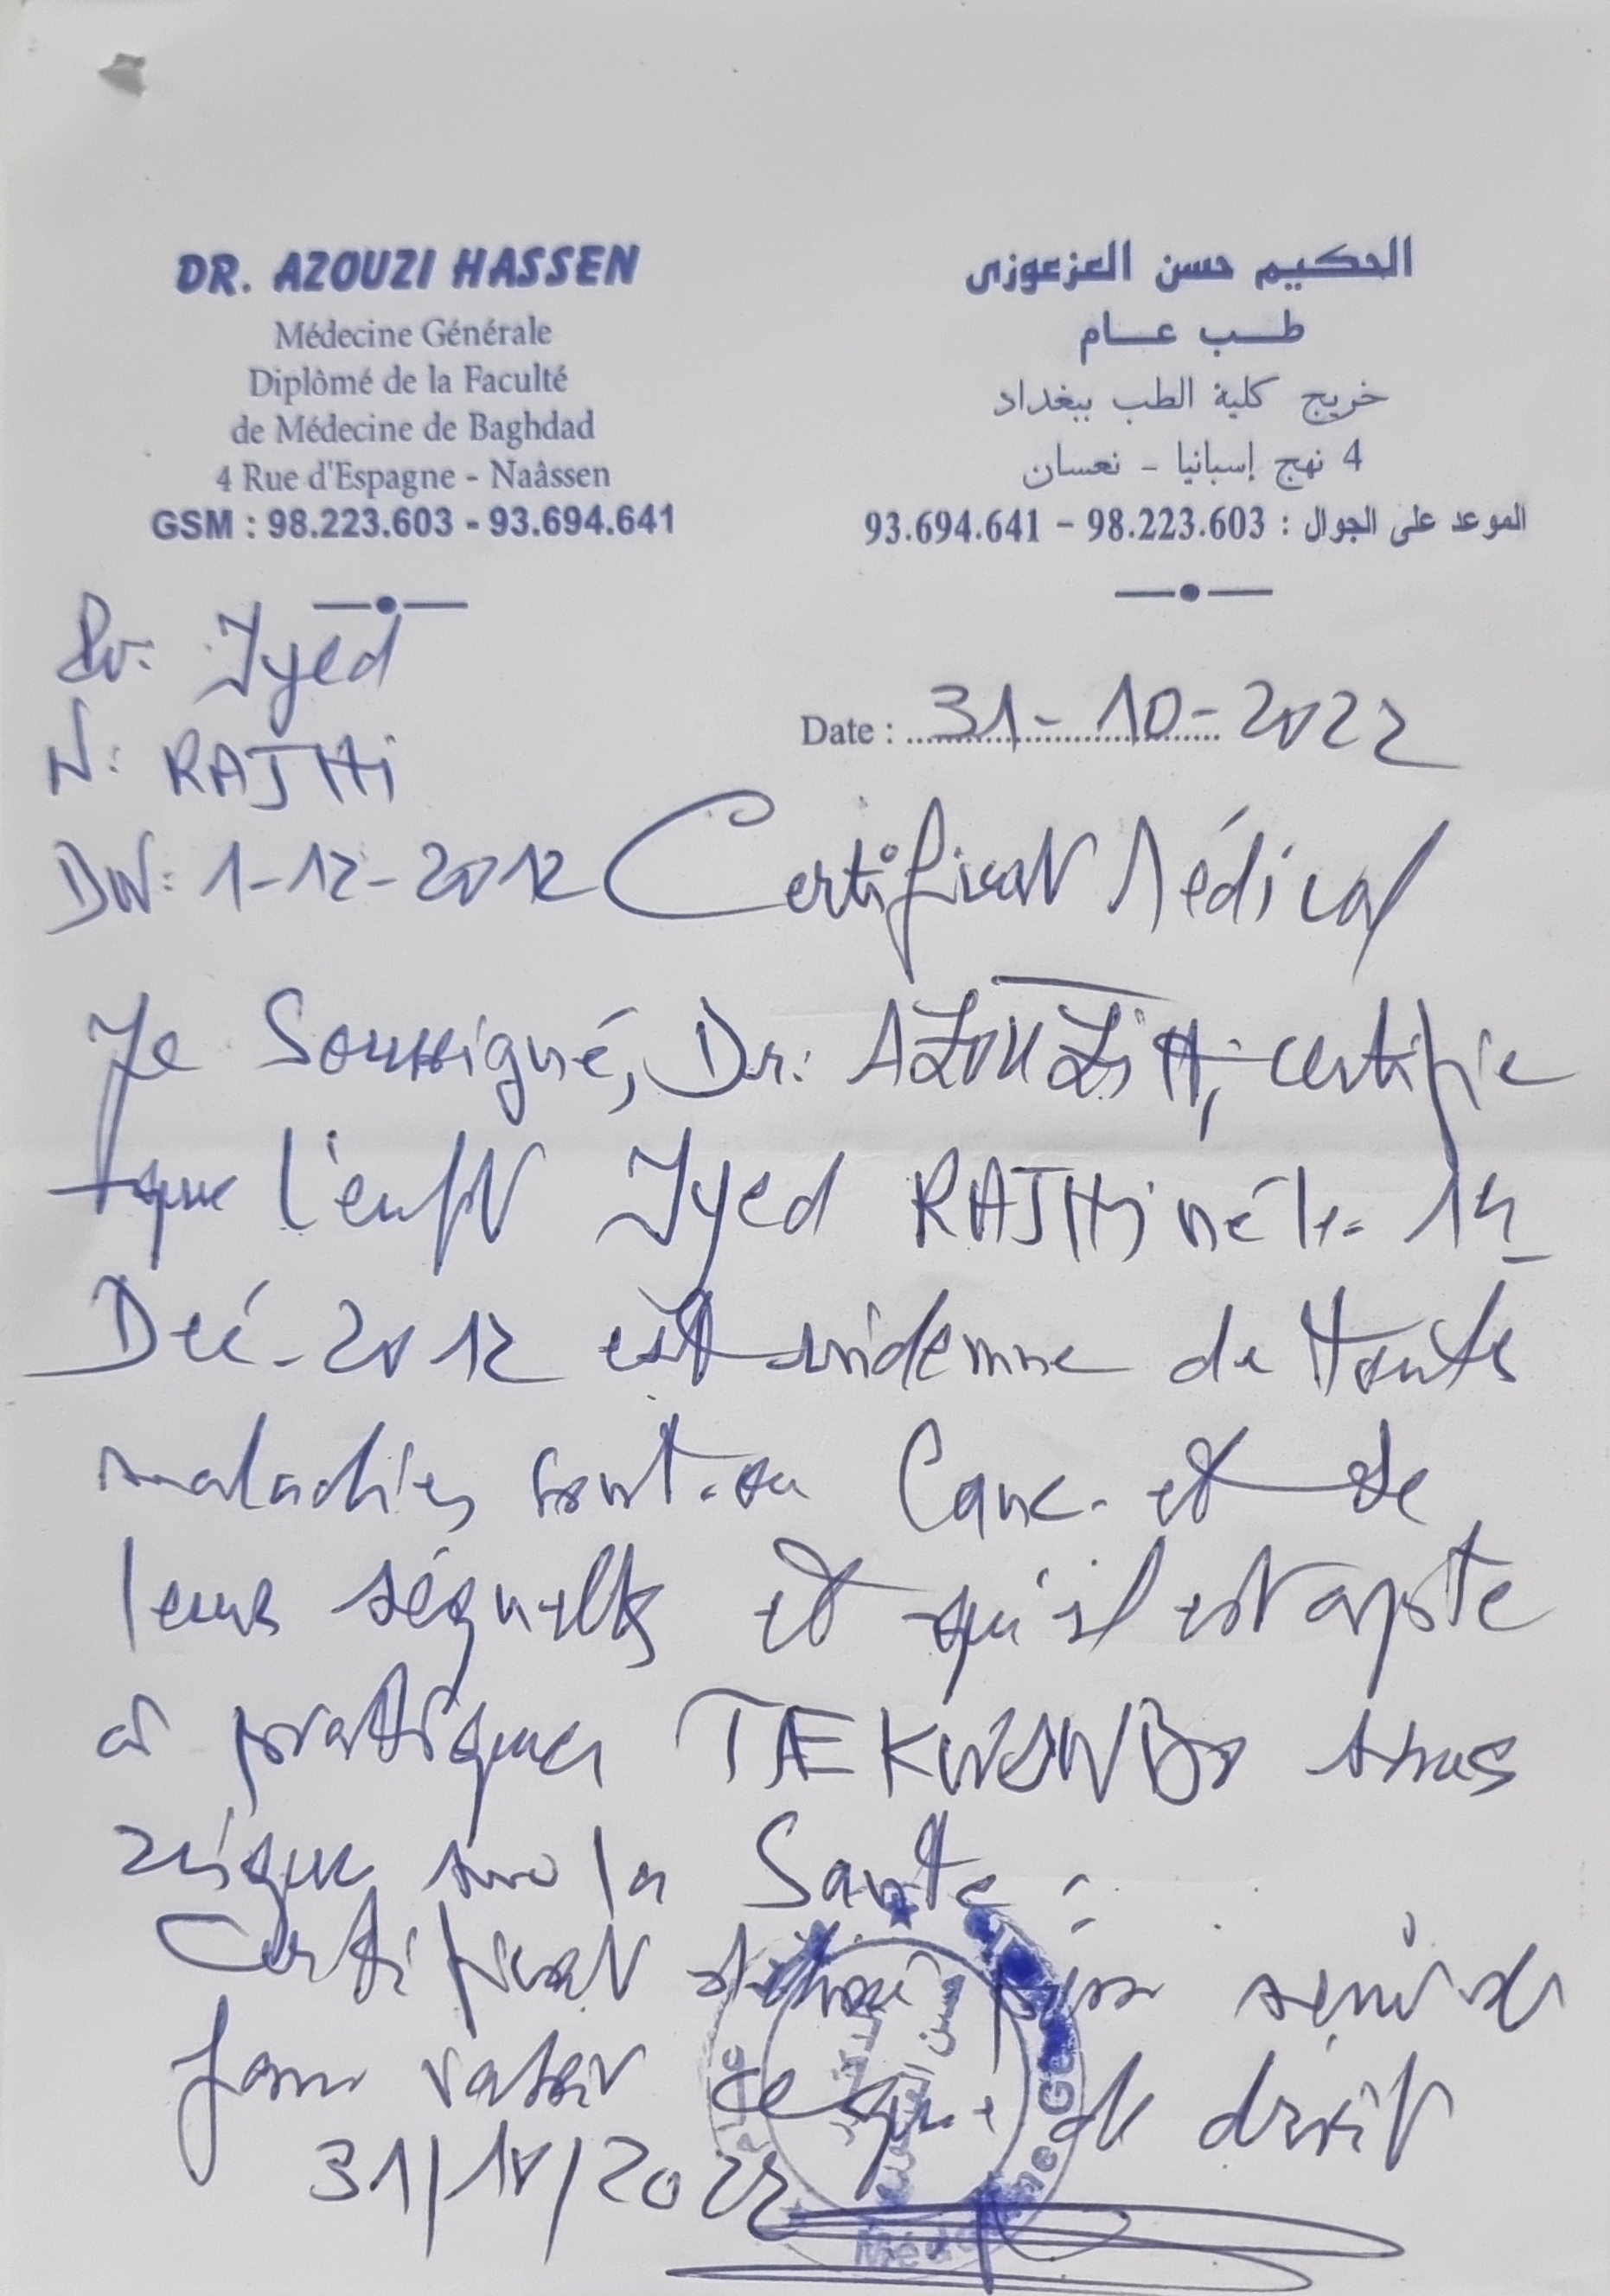 DR. AZOUZI HASSEN
Médecine Générale
Diplômé de la Faculté
de Médecine de Baghdad
4 Rue d'Espagne - Naâssen
GSM : 98.223.603 - 93.694.641
الحكيم حسن العزعوزي
طب عام
خريج كلية الطب ببغداد
4 نهج إسبانيا - نعسان
الموعد على الجوال : 98.223.603 - 93.694.641
Pr: Iyed
N: RAJHi
DN: 1-12-2012
Date : 31-10-2022
Certificat Médical
Je Soussigné, Dr: AZOUZi H, certifie
que l'enft Iyed RAJHi né le
Déc-2012 est indemne de toutes
maladies cont.ou Canc. et de
leurs séquelles et qu'il est apte
à pratiquer TAEKWONDO sans
risque sur la Santé.
Certificat délivré pour servir
faire valoir ce que de droit
31/10/2022